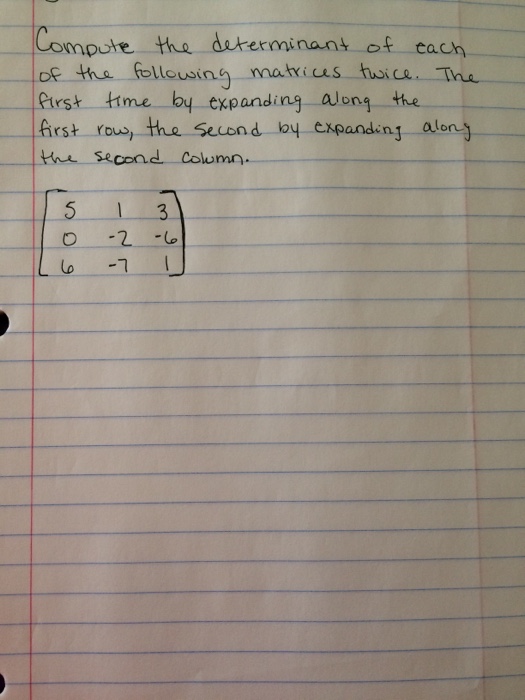 Compute the determinant of each
of the following matrices twice. The
first time by expanding along the
first row, the second by expanding along
the second column.
5 1 3
0 -2 -6
6 -7 1